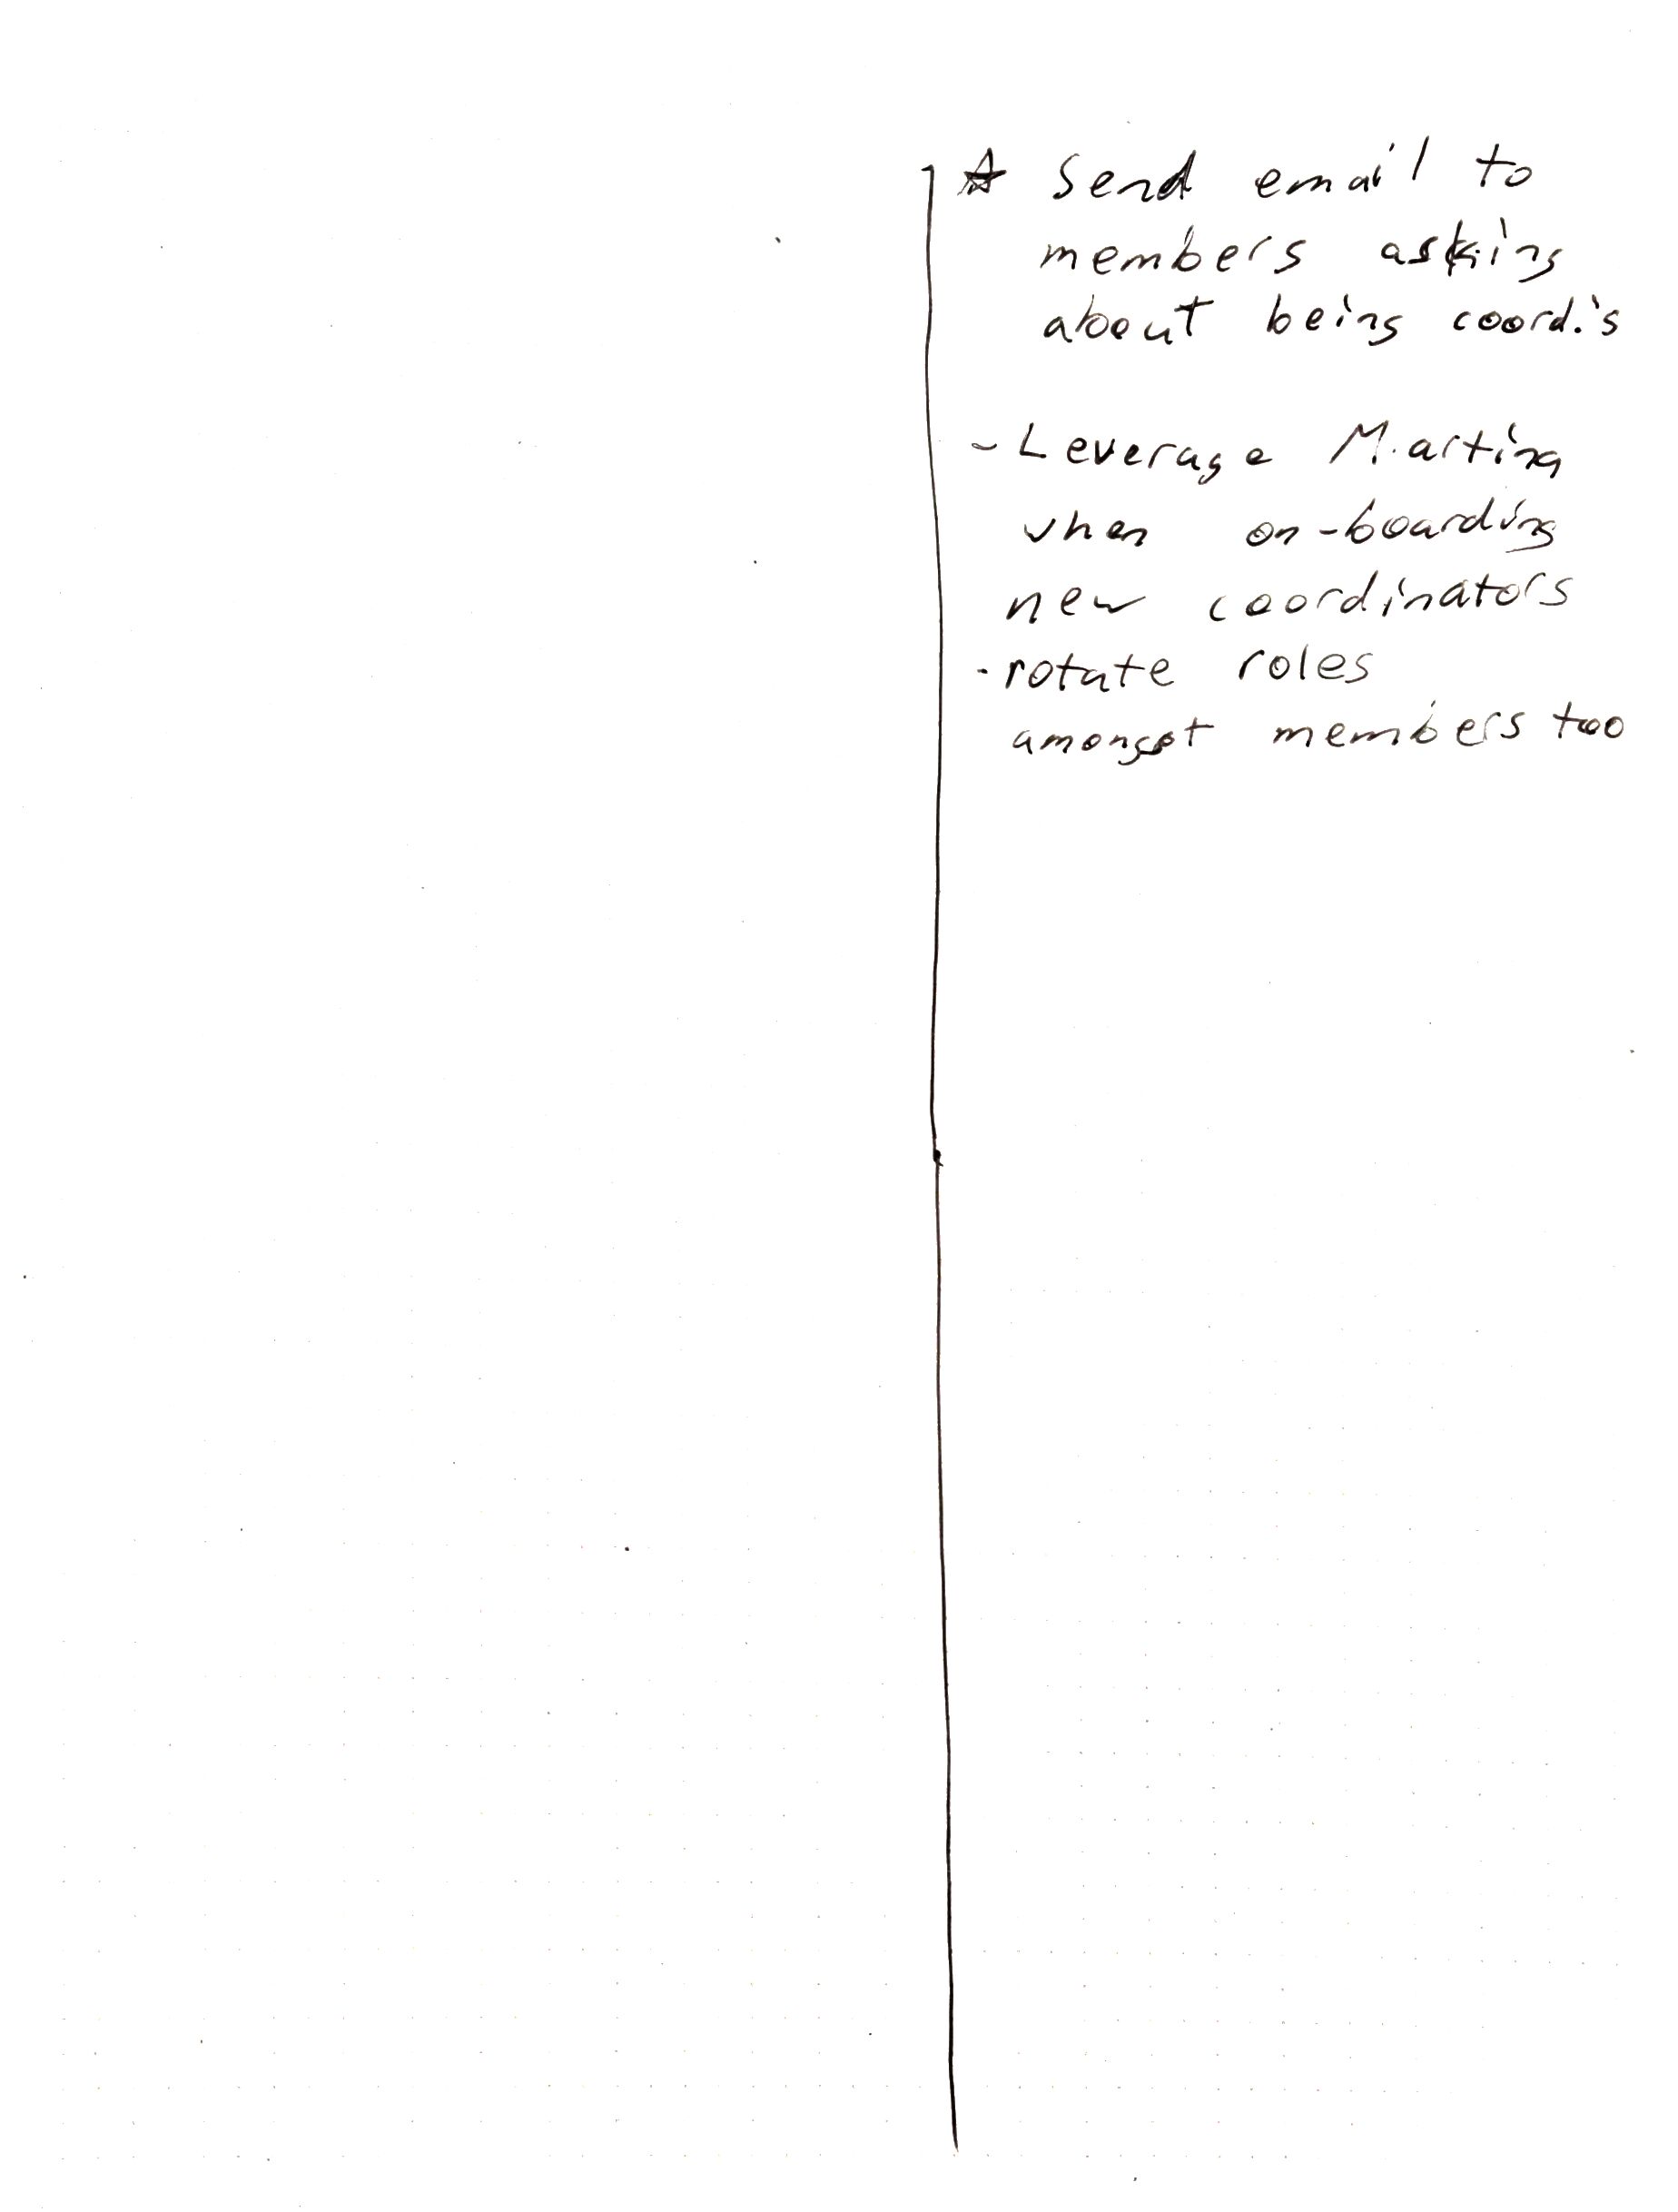 ☆ Send email to
members asking
about being coord.'s
- Leverage Martina
when on-boarding
new coordinators
- rotate roles
amongst members too